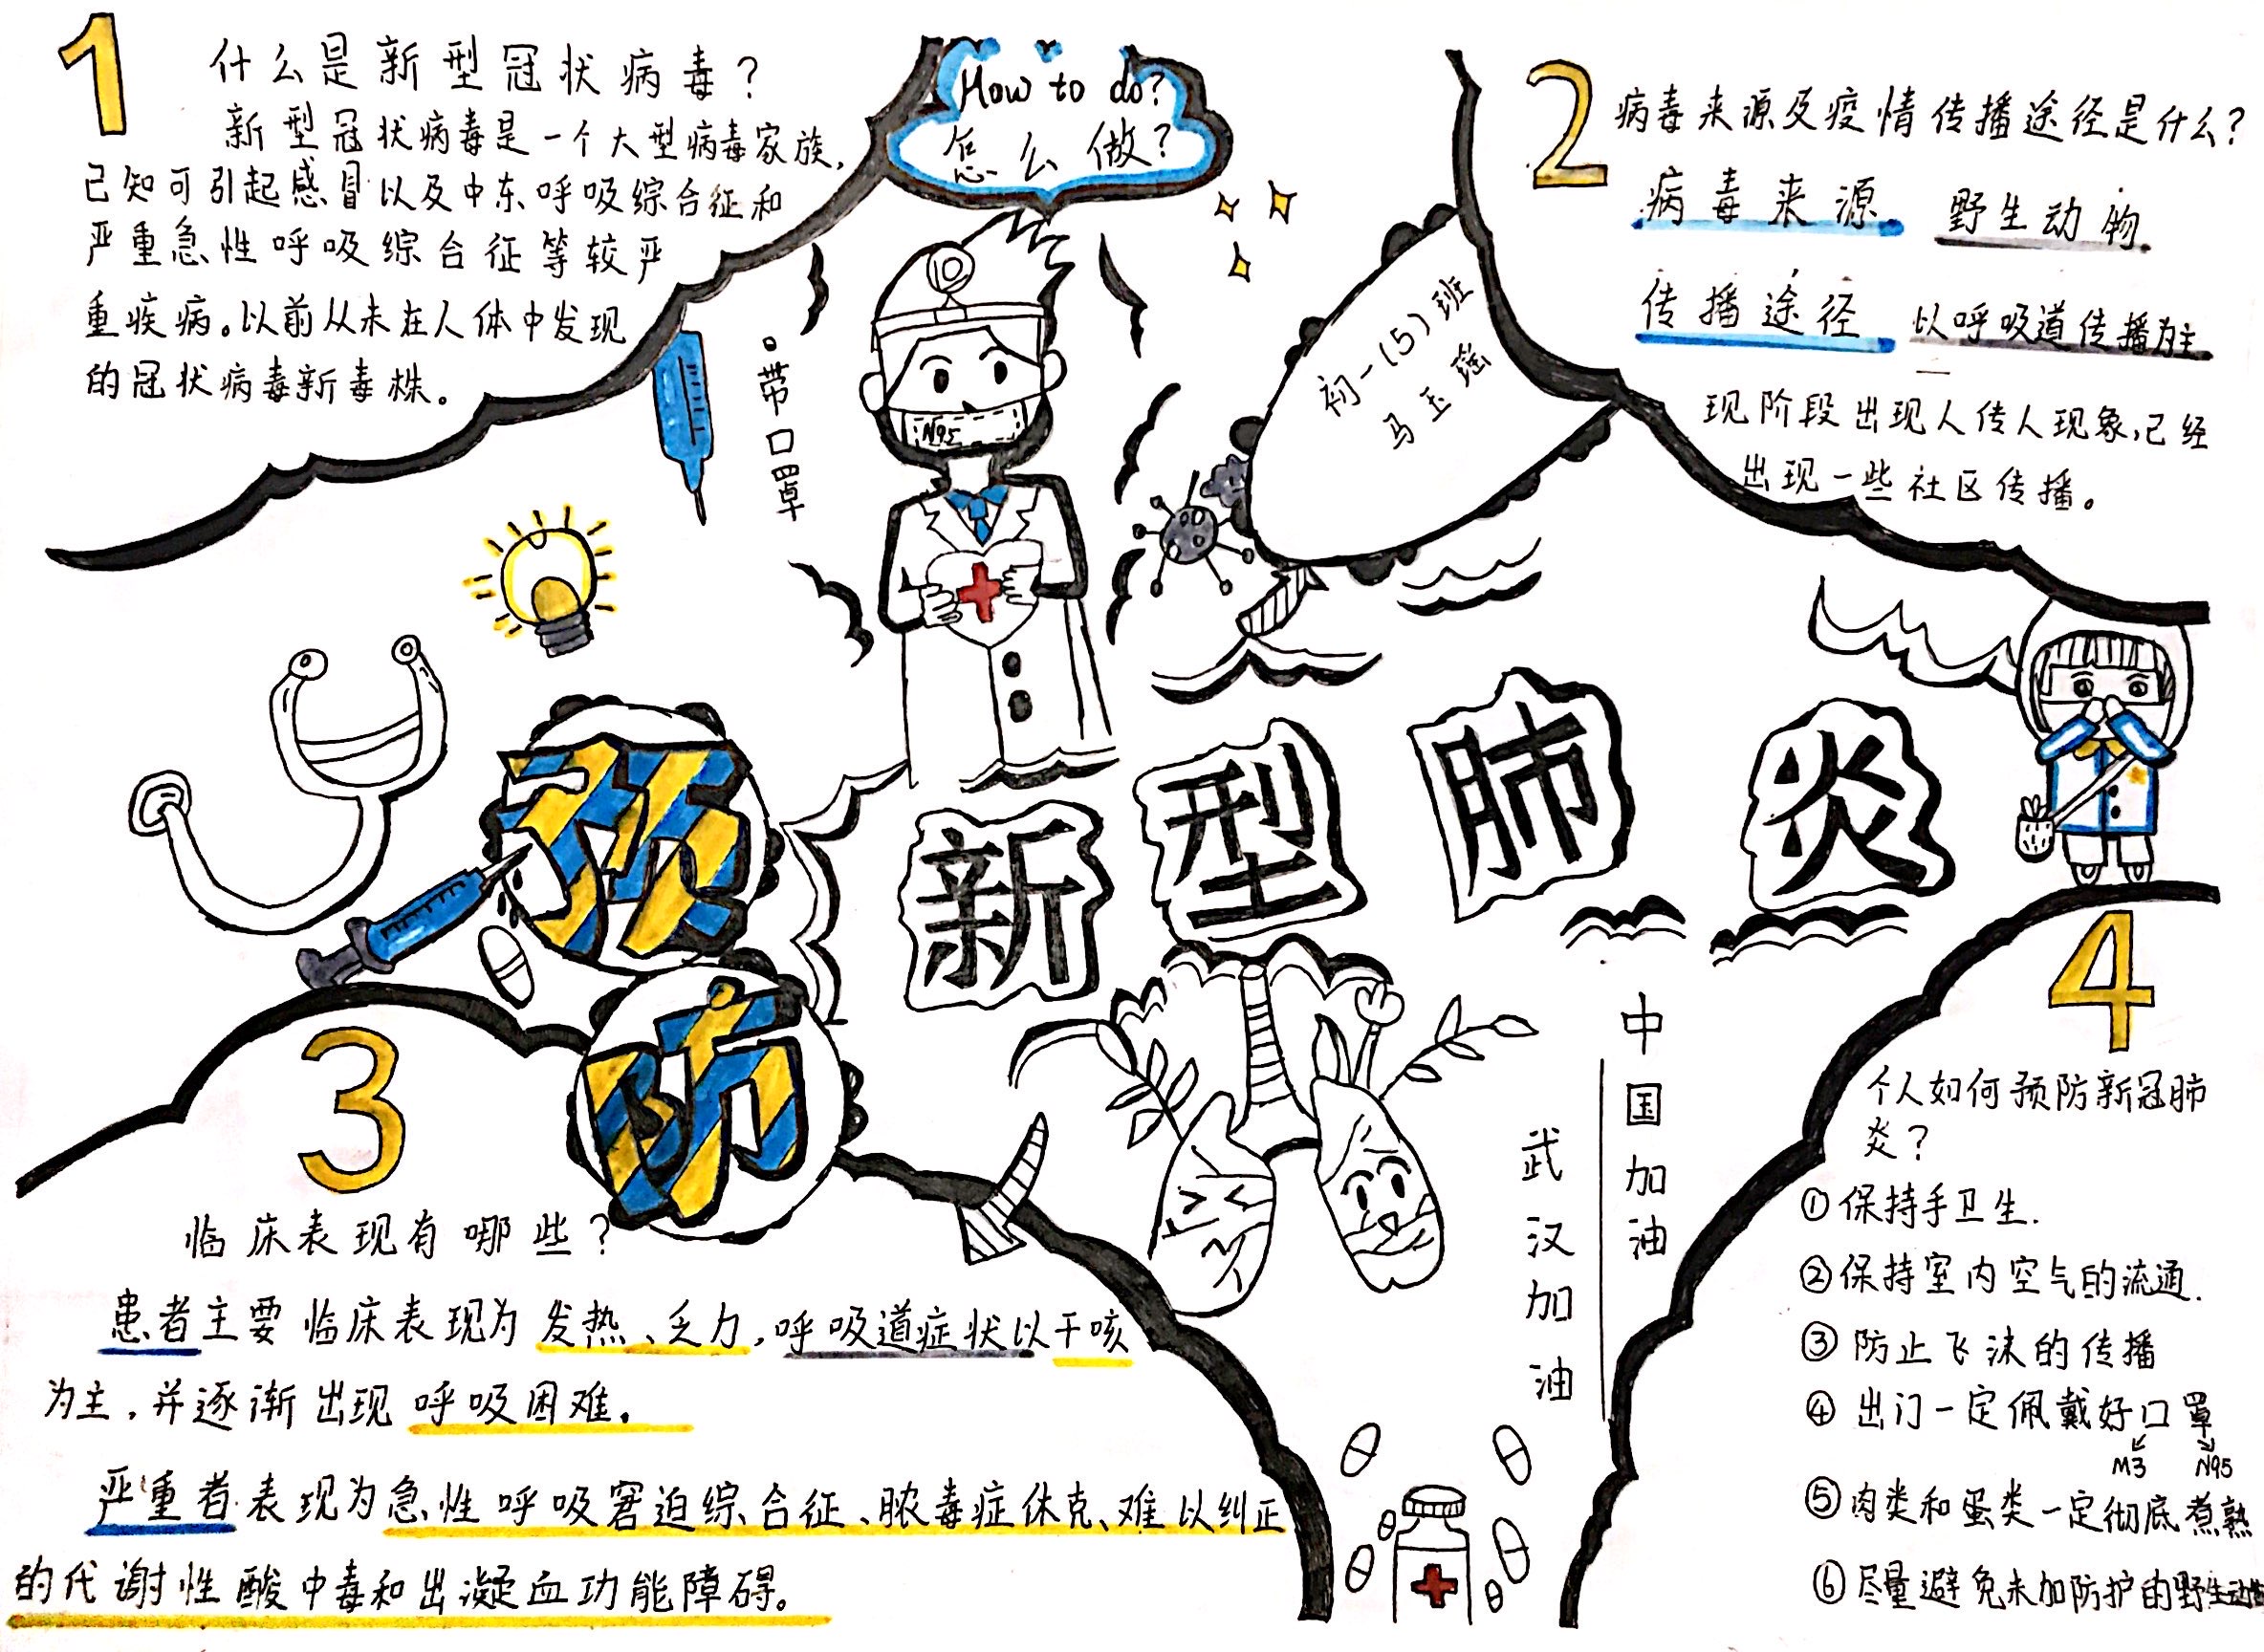 1
什么是新型冠状病毒?
新型冠状病毒是一个大型病毒家族,
已知可引起感冒以及中东呼吸综合征和
严重急性呼吸综合征等较严
重疾病。以前从未在人体中发现
的冠状病毒新毒株。
How to do?
怎么做?
带口罩
N95
初一(5)班
马玉瑶
2
病毒来源及疫情传播途径是什么?
病毒来源 野生动物
传播途径 以呼吸道传播为主
现阶段出现人传人现象,已经
出现一些社区传播。
预防
新型肺炎
3
临床表现有哪些?
患者主要临床表现为发热、乏力,呼吸道症状以干咳
为主,并逐渐出现呼吸困难。
严重者表现为急性呼吸窘迫综合征、脓毒症休克、难以纠正
的代谢性酸中毒和出凝血功能障碍。
中国加油
武汉加油
4
个人如何预防新冠肺
炎?
①保持手卫生.
②保持室内空气的流通.
③防止飞沫的传播
④出门一定佩戴好口罩
M3 N95
⑤肉类和蛋类一定彻底煮熟
⑥尽量避免未加防护的野生动物